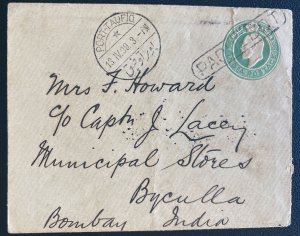 PORT-TAUFIQ
PAQUEBOT
Mrs F. Howard
c/o Captn J. Lacey
Municipal Stores
Byculla
Bombay India